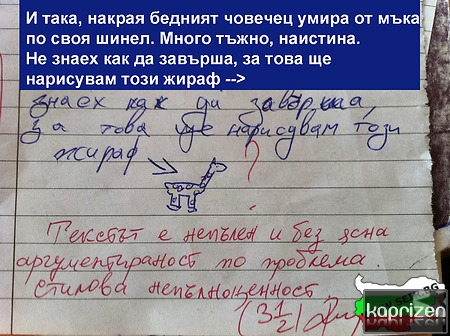 И така, накрая бедният човечец умира от мъка
по своя шинел. Много тъжно, наистина.
Не знаех как да завърша, за това ще
нарисувам този жираф -->
знаех как да завърша,
за това ще нарисувам този
жираф
?
Текстът е непълен и без ясна
аргументираност по проблема
стилова непълноценност
(3 1/2)
kaprizen